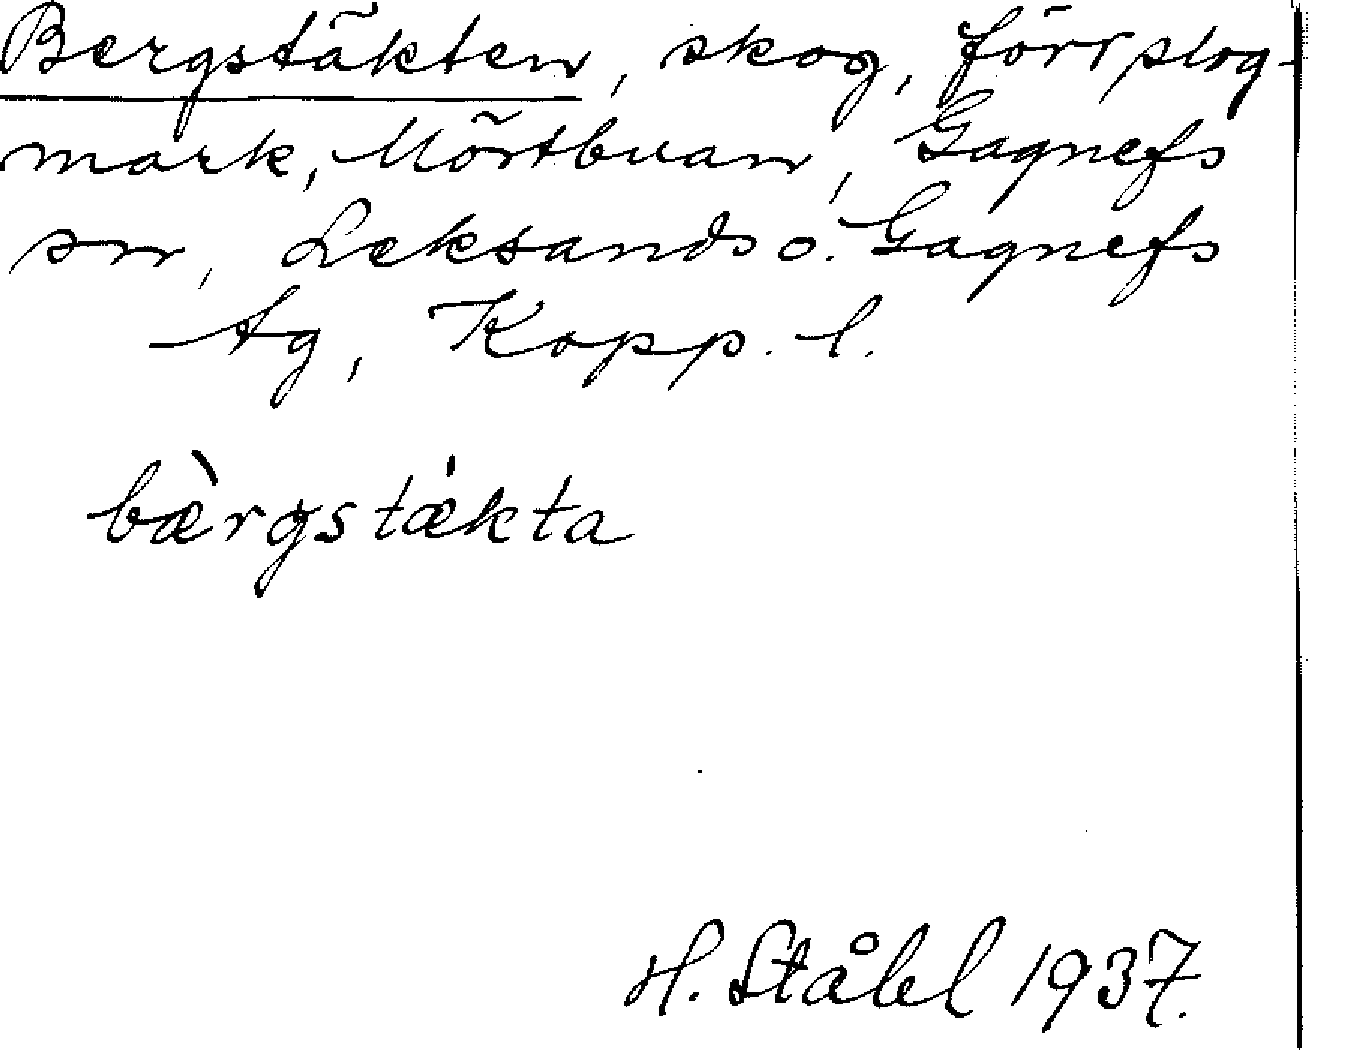 Bergstäkten, skog, förr plog-
mark, Mörtbuan, Gagnefs
sn, Leksands o. Gagnefs
tg, Kopp. l.
bæ̀rgstækta
H. Ståhl 1937.